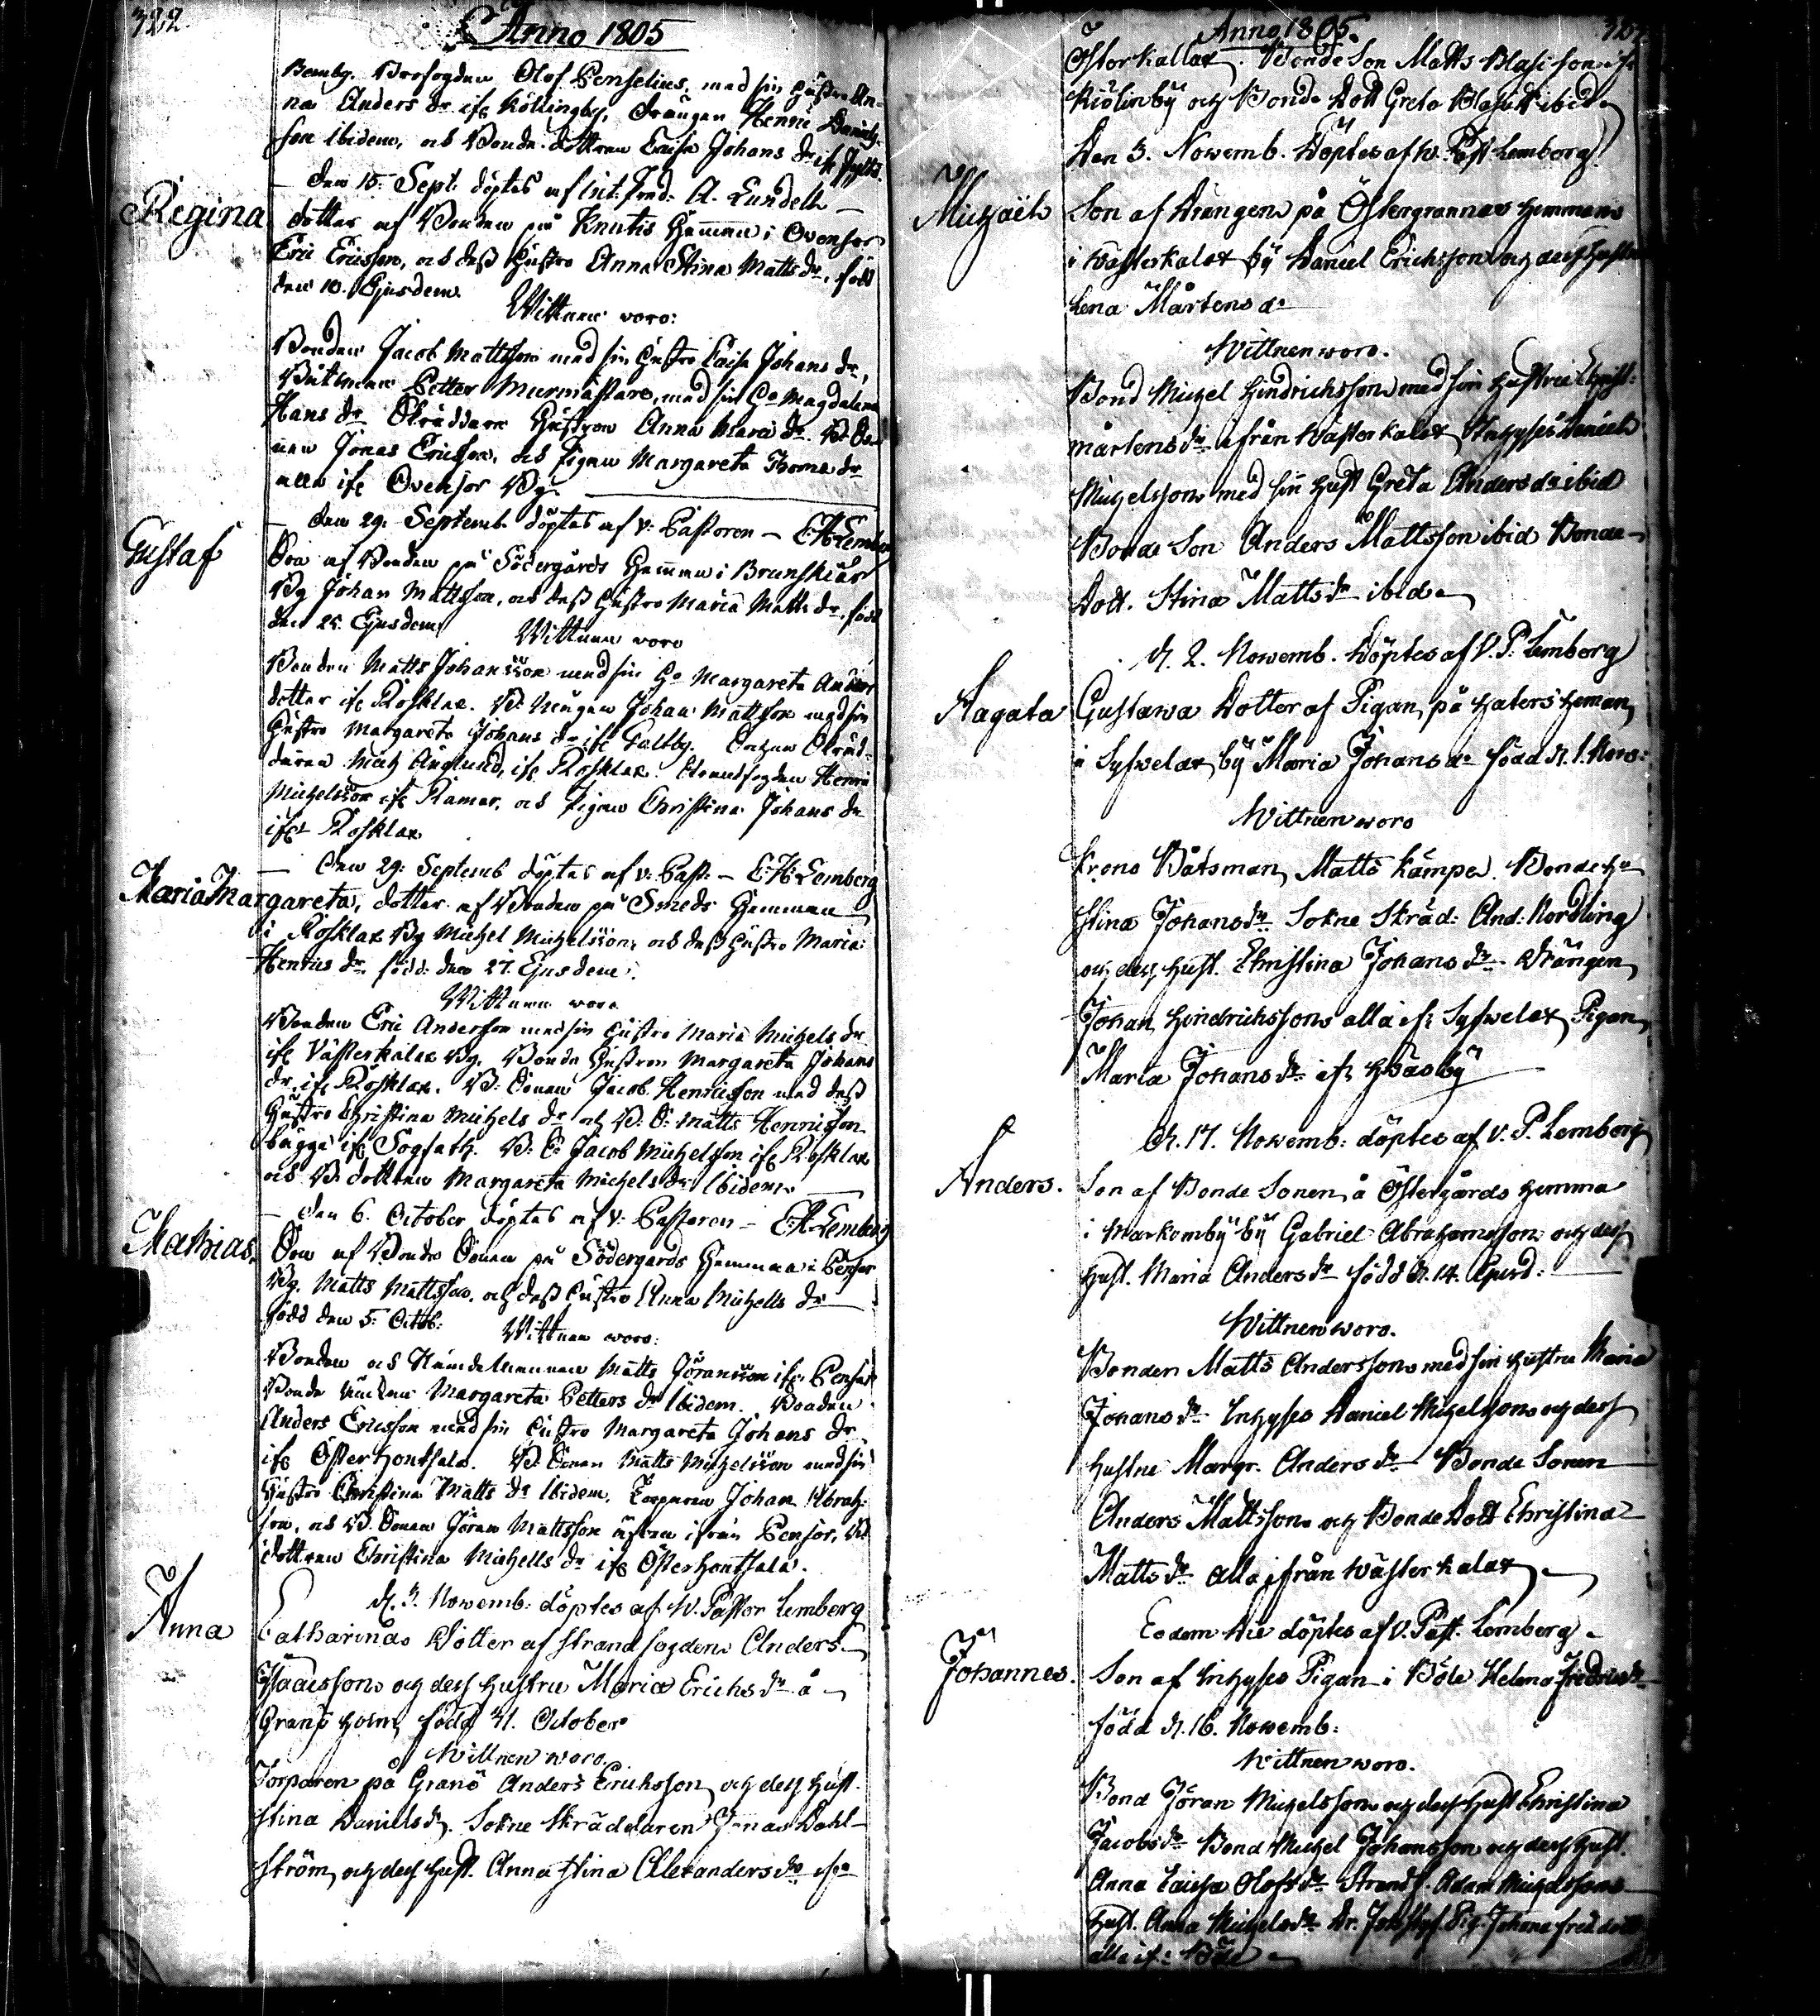 322
Anno 1805
Bemby. Brofogden Olof Penselius, med sin Hustru An-
na Anders dr ifr Köllingby, Drängen Henric
son ibidem, och Bonde dottren Caisa Johans dr
Den 15. Sept. döptes af A. Lundell
Regina
dotter af Bonden på Knutis Hemman i Ovensor
Eric Ericsson, och dess Hustru Anna Stina Matts dr, född
den 10. Ejusdem.
Wittnen woro:
Bonden Jacob Mattsson med sin Hustru Caisa Johans dr,
Båtsman Petter Murmästare, med sin Ho Magdalena
Hans dr Skräddare Hustrun Anna Maria dr. B. So-
nen Jonas Ericsson, och pigan Margareta Thomas dr
alla ifr Ovensor By.
Den 29. Septemb. döptes af v. Pastoren - E. H. Lemberg
Gustaf
Son af Bonden på Södergårds Hemman i Brunskiär
By Johan Mattsson, och dess Hustru Maria Matts dr, född
den 25. Ejusdem
Wittnen woro
Bonden Matts Johansson med sin Ho Margareta Anders
dotter ifr Rosklax. B. Mågen Johan Mattsson med sin
Hustru Margareta Johans dr ifr Galtby. Sochne Skräd-
daren Mich Änglund, ifr Rosklax. Strandfogden Henric
Michelsson ifr Ramar, och pigan Christina Johans dr
ifr Rosklax
Den 29. Septemb döptes af v. Past. - E. H. Lemberg
Maria Margareta, dotter af Bonden på Smeds Hemman
i Rosklax By Michel Michelsson, och dess Hustru Maria
Henrics dr. född den 27. Ejusdem.
Wittnen woro
Bonden Eric Andersson med sin Hustru Maria Michels dr
ifr Västerkalax By. Bonde Hustrun Margareta Johans
dr. ifr Rosklax. B. Sonen Jacob Henricsson med dess
Hustru Christina Michels dr och B. S. Matts Henricsson
bägge ifr Sogsath. B. S. Jacob Michelsson ifr Rosklax
och B. dottren Margareta Michels dr Ibidem
Den 6. October döptes af v. Pastoren - E. H. Lemberg
Mathias.
Son af Bonde Sonen på Södergårds Hemman i Pensor
By. Matts Mattsson, och dess Hustru Anna Michells dr
född den 5. Octob:
Wittnen woro:
Bonden och Nämdemannen Matts Göransson ifr Pensar
Bonde Margareta Petters dr Ibidem. Bonden
Anders Ericsson med sin Hustru Margareta Johans dr
ifr Österhontsala. B. Sonen Matts Michelsson med sin
Hustru Christina Matts dr Ibidem, Torparen Johan Abrah:
son, och B. Sonen Jöran Mattsson äfven ifrån Pensor, B.
dottren Christina Michells dr ifr Österhontsala.
d. 3. Nowemb. döptes af W. Pastor Lemberg
Anna
Catharina Dotter af strandfogden Anders
Isaacsson och dess Hustru Maria Erichs dr å
Granö holm, född 31. October
Wittnen woro.
Torparen på Granö Anders Erichsson och dess Hust.
Stina Daniels dr. Sokne Skräddaren Jonas Dahl-
ström och dess Hust. Anna Stina Alexanders dr ifr
Anno 1805.
Österkallax. Bonde Son Matts Blasisson ifr
Kiölinby och Bonde Dott Greta ibid.
Den 3. Nowemb. Döptes af W. Past Lemberg
Michaël
Son af Drängen på Östergrannas Hemman
i Wästerkalax By Daniel Erichsson och dess Hustru
Lena Mårtens dr
Wittnen woro.
Bond Michel Hindrichsson med sin Hustru Christ:
Mårtens dr ifrån Wästerkalax Inhyses Daniel
Michelsson med sin Hust Greta Anders dr ibid
Bonde Son Anders Mattsson ibid Bonde
Dott. Stina Matts dr ibid.
d. 2. Nowemb. Döptes af V. P. Lemberg
Aagata
Gustawa Dotter af Pigan på Haters Heman
i Syfwelax by Maria Johans dr född d. 1. Now:
Wittnen woro
Krono Båtsman Matts Kämpe. Bonde H
Stina Johans dr Sokne Skräd: And: Nordling
och dess Hust. Christina Johans dr Drängen
Johan Hindrichsson alla ifr Syfwelax Pigan
Maria Johans dr ifr Wäsby
d. 17. Nowemb: döptes af v. P. Lemberg
Anders.
Son af Bonde Sonen å Östergårds Hemma
i Markomby by Gabriel Abrahamsson och dess
Hust. Maria Anders dr född d. 14. Ejusd:
Wittnen woro.
Bonden Matts Andersson med sin Hustru Maria
Johans dr Inhyses Daniel Michelsson och dess
Hustru Margr. Anders dr Bonde Sonen
Anders Mattsson och Bonde Dott Christina
Matts dr alla ifrån Wästerkalax
Eodem Die döptes af V. Past. Lemberg.
Johannes.
Son af Inhyses Pigan i Böle Helena Fredrics dr
född d. 16. Nowemb:
Wittnen woro.
Bond Jöran Michelsson och dess Hust Christina
Jacobs dr Bond Michel Johansson och dess Hust.
Anna Caisa Olofs dr Strandf. Adam Michelsson
Hust. Anna Michels dr Dr. Pig. Johana
alla ifr: Böle